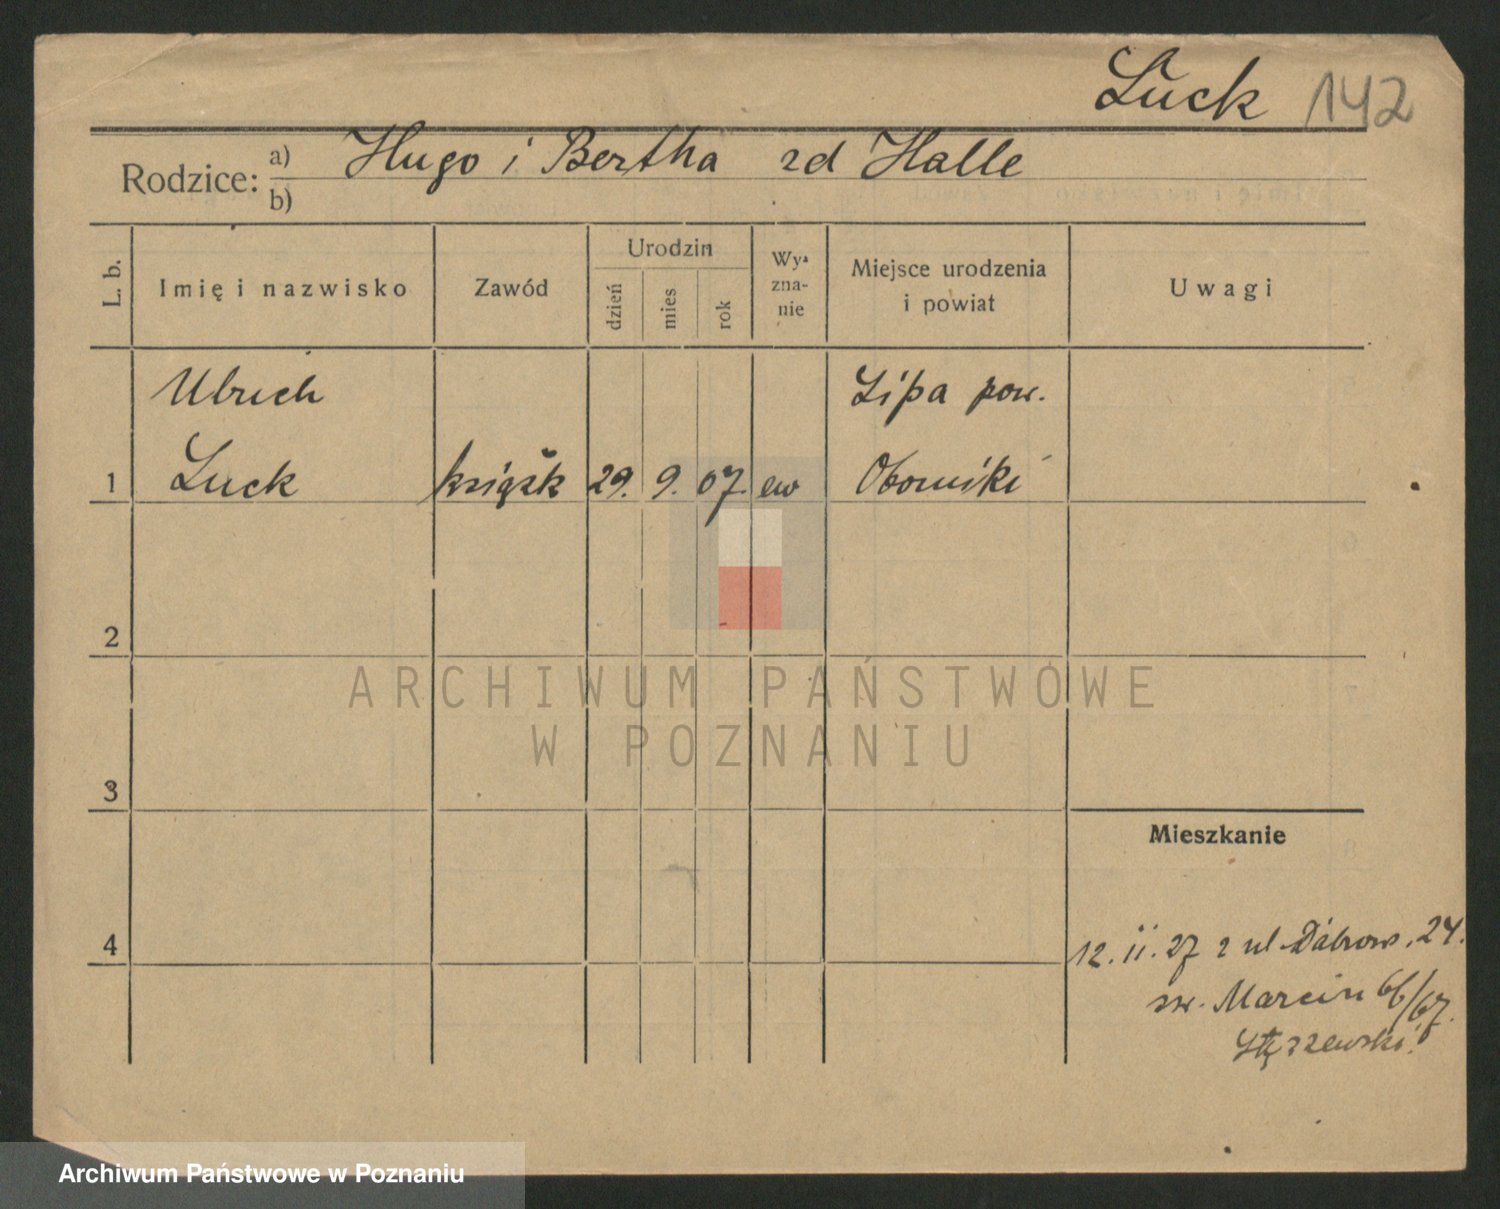 Luck 142
Rodzice: a) Hugo i Bertha zd Halle
b)
L. b. Imię i nazwisko Zawód Urodzin dzień mies rok Wy-zna-nie Miejsce urodzenia i powiat Uwagi
Ulrich Lipa pow.
1 Luck książk 29. 9. 07. ew Oborniki
2
ARCHIWUM PAŃSTWOWE
W POZNANIU
3
Mieszkanie
4
12. ii. 27 z ul Dąbrows. 24.
św. Marcin 66/67.
Archiwum Państwowe w Poznaniu